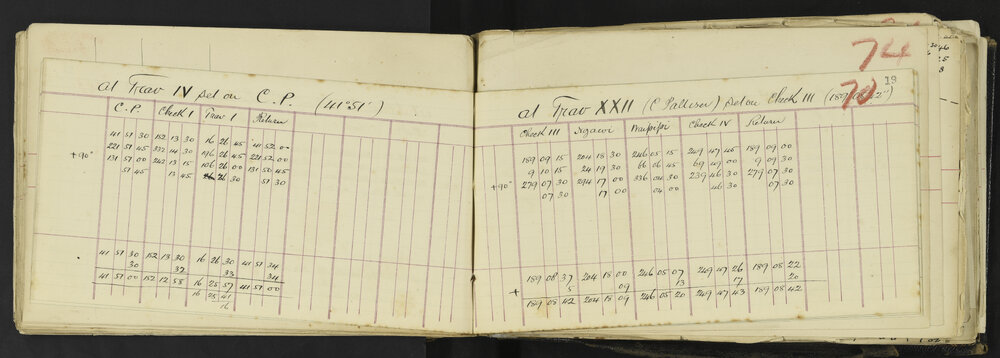 at Trav IV set on C.P. (41°51')
C.P. Check I Trav I Return
41 51 30 152 13 30 16 26 45 41 52 00
221 51 45 332 14 30 196 26 45 221 52 00
+90° 131 51 00 242 13 15 106 26 00 131 50 45
51 45 13 45 26 30 51 30
41 51 30 152 13 30 16 26 30 41 51 34
30 32 33 34
41 51 00 152 12 58 16 25 57 41 51 00
16 25 41
16
74
70
19
at Trav XXII (C Palliser) set on Check III (189° 22")
Check III Ngawi Check IV Return
189 09 15 204 18 30 246 05 15 249 47 45 189 09 00
9 10 15 24 19 30 66 06 45 69 49 00 9 09 30
+90° 279 07 30 294 17 00 336 04 30 239 46 30 279 07 30
07 30 17 00 04 00 46 30 07 30
189 08 37 204 18 00 246 05 07 249 47 26 189 08 22
+ 5 09 13 17 20
189 08 42 204 18 09 246 05 20 249 47 43 189 08 42